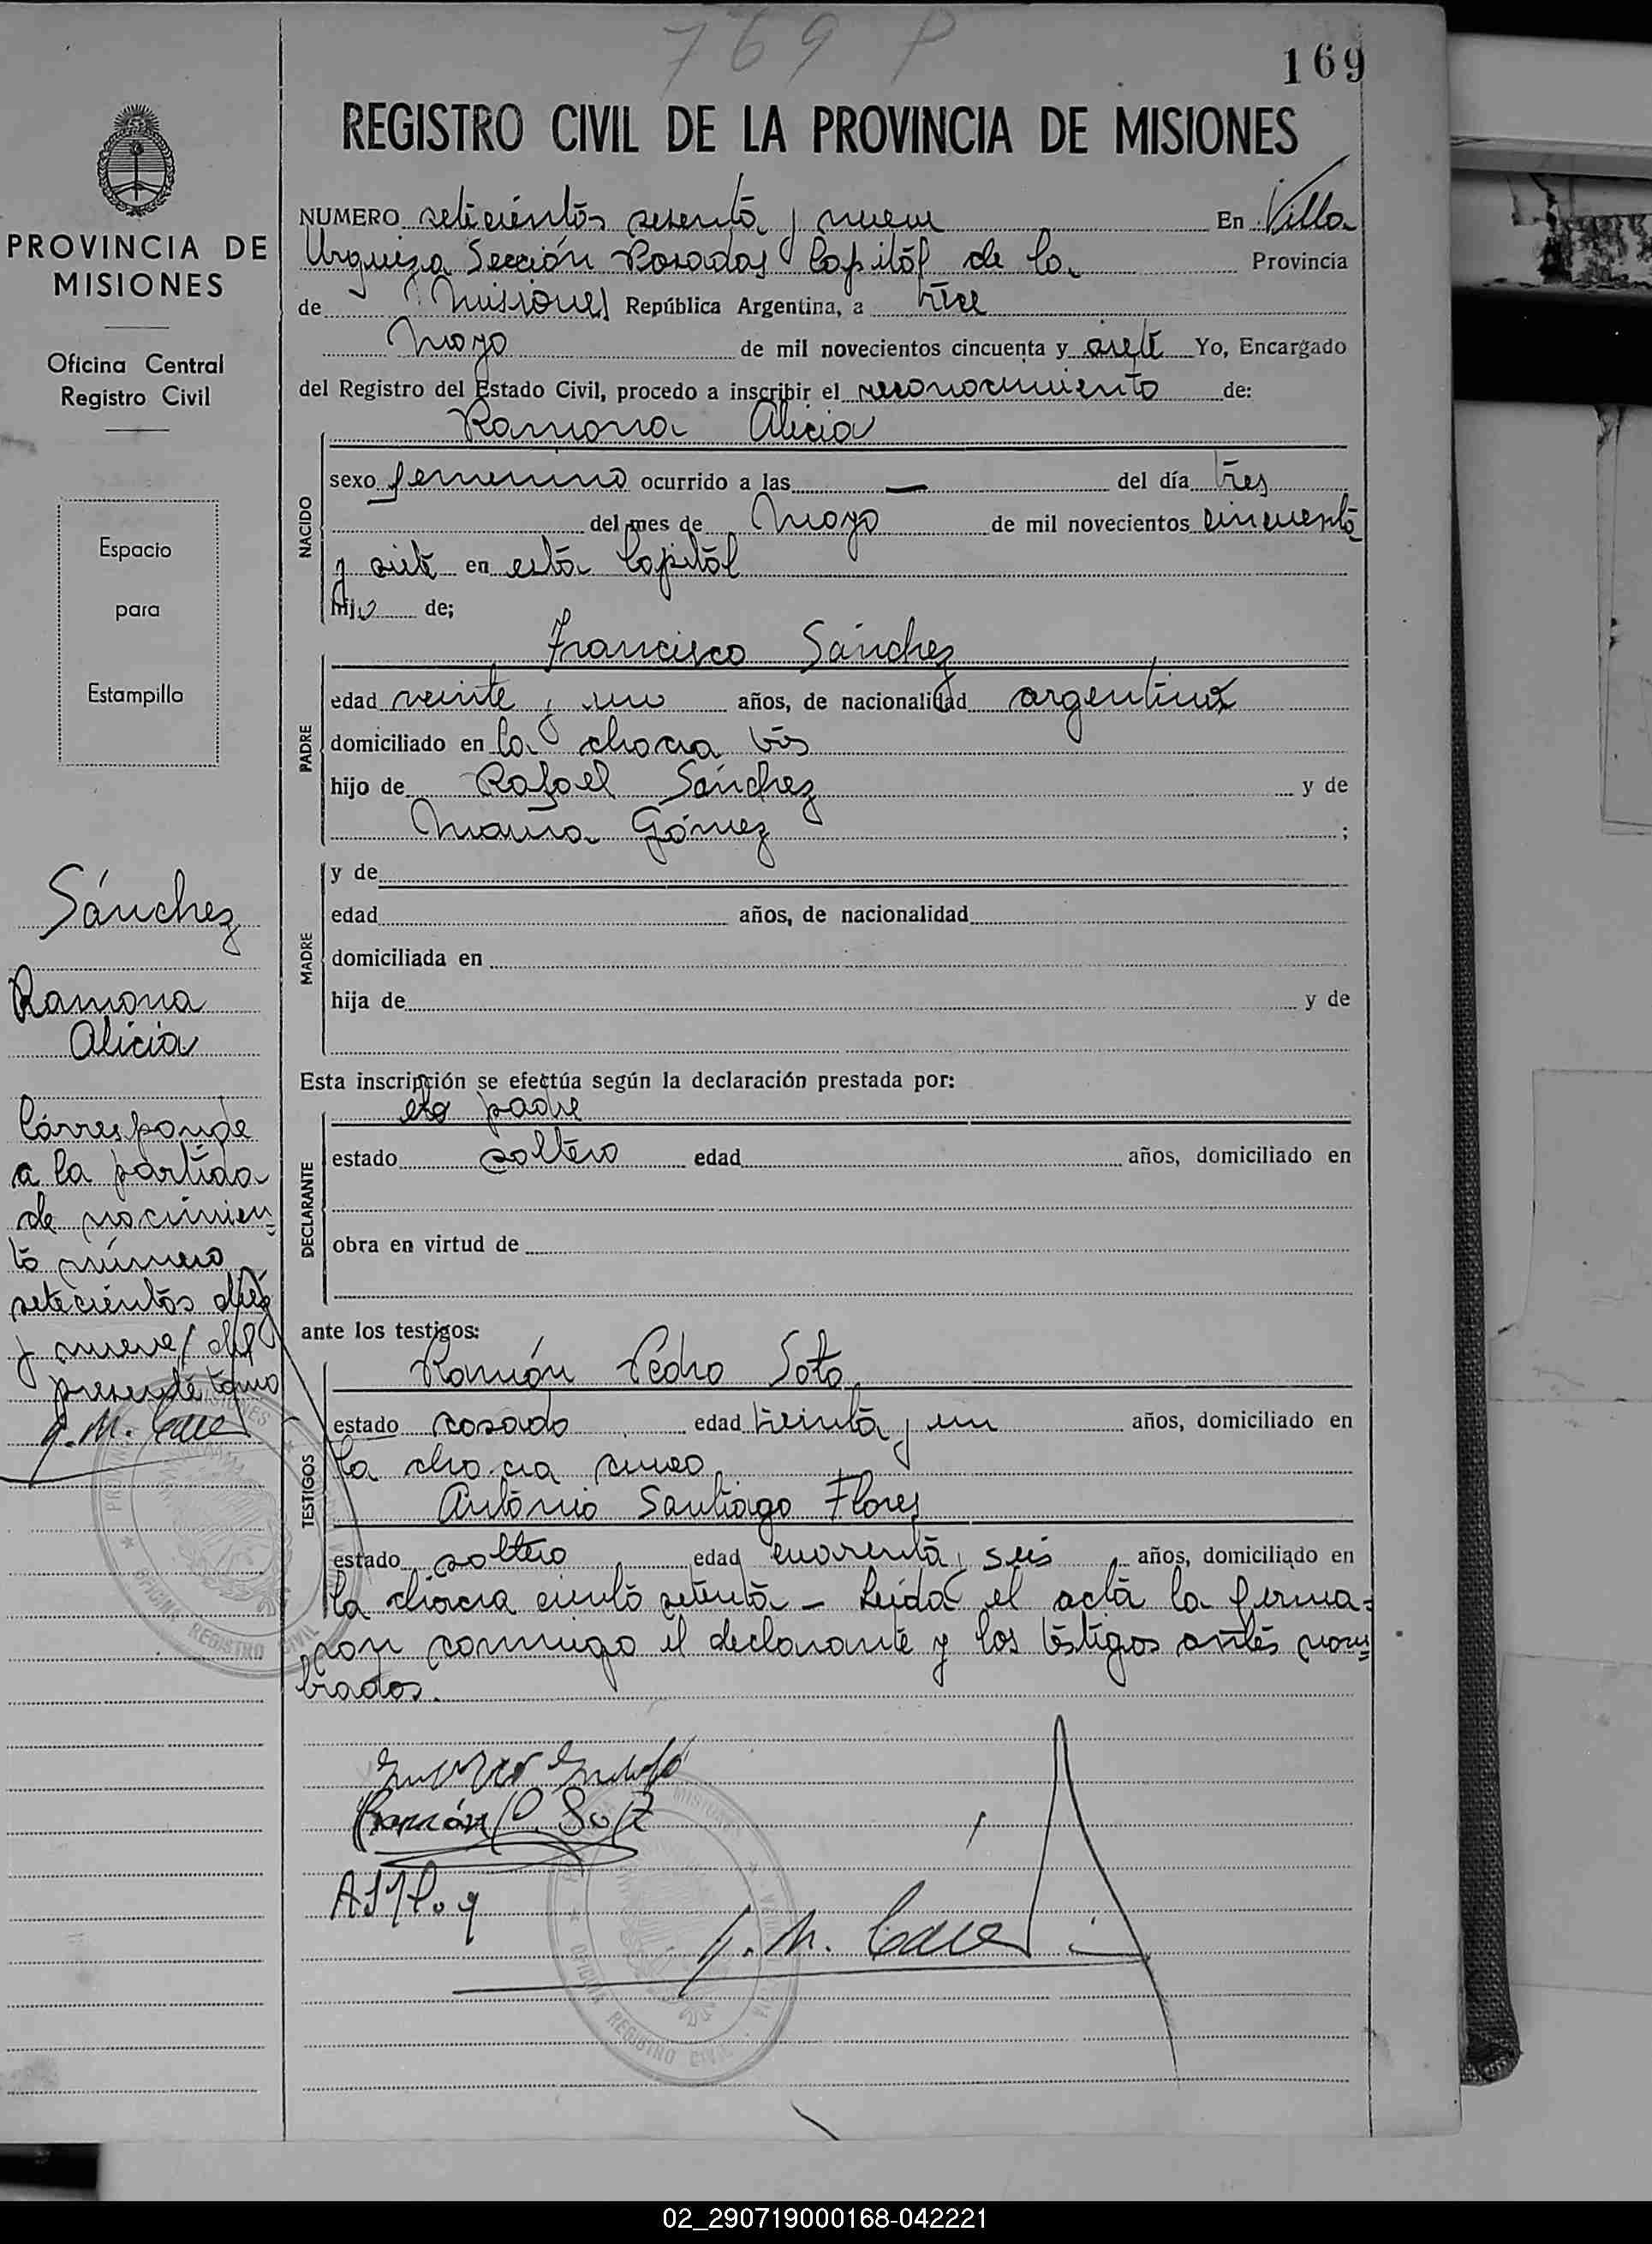 769 P
169
REGISTRO CIVIL DE LA PROVINCIA DE MISIONES
NUMERO setecientos sesenta y nueve En Villa
Urquiza Sección Posadas Capital de la Provincia
de Misiones República Argentina, a trece
Mayo de mil novecientos cincuenta y siete Yo, Encargado
del Registro del Estado Civil, procedo a inscribir el reconocimiento de:
Ramona Alicia
NACIDO
sexo femenino ocurrido a las — del día tres
del mes de Mayo de mil novecientos cincuenta
y siete en esta Capital
hijo de;
Francisco Sánchez
PADRE
edad veinte y un años, de nacionalidad argentina
domiciliado en la chacra tres
hijo de Rafael Sánchez y de
María Gómez ;
MADRE
y de
edad años, de nacionalidad
domiciliada en
hija de y de
Esta inscripción se efectúa según la declaración prestada por:
padre
DECLARANTE
estado soltero edad años, domiciliado en
obra en virtud de
ante los testigos:
Ramón Pedro Soto
TESTIGOS
estado casado edad treinta y un años, domiciliado en
la chacra cinco
Antonio Santiago Flores
estado soltero edad cuarenta y seis años, domiciliado en
la chacra ciento setenta - Leída el acta la firma=
ron conmigo el declarante y los testigos antes nom=
brados.
Ramón P. Soto
PROVINCIA DE
MISIONES
Oficina Central
Registro Civil
Espacio
para
Estampilla
Sánchez
Ramona
Alicia
Corresponde
a la partida
de nacimien=
to número
setecientos diez
y nueve / del
presente tomo
OFICINA REGISTRO CIVIL
OFICINA REGISTRO CIVIL
02_290719000168-042221